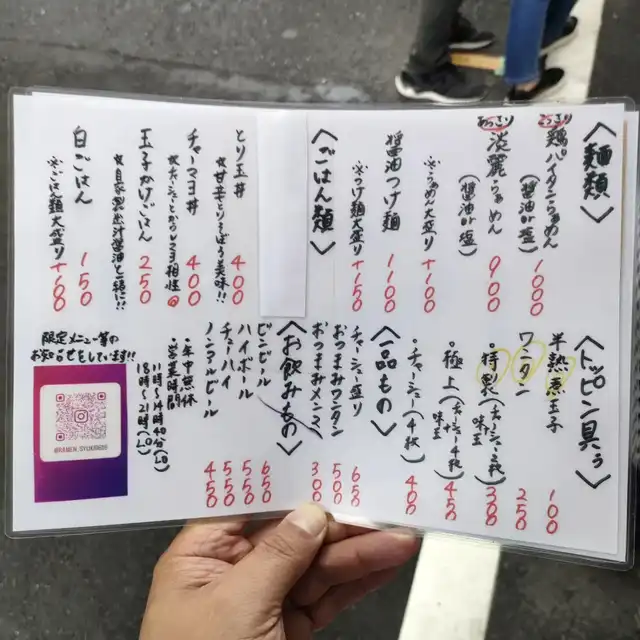 〈麺類〉
こってり
鶏パイタンらぁめん 1000
(醤油か塩)
あっさり
淡麗らぁめん 900
(醤油か塩)
※らぁめん大盛り +100
醤油つけ麺 1100
※つけ麺大盛り +150
〈ごはん類〉
とり玉丼 400
チャーマヨ丼 400
玉子かけごはん 250
★自家製出汁醤油と一緒に!!
白ごはん 150
〈トッピン具ぅ〉
半熟煮玉子 100
ワンタン 250
・特製(チャーシュー2枚 味玉) 300
・極上(チャーシュー4枚 味玉) 450
・チャーシュー(4枚) 400
〈一品もの〉
チャーシュー盛り 650
おつまみワンタン 500
おつまみメンマ 300
〈お飲みもの〉
ビンビール 650
ハイボール 550
チューハイ 550
ノンアルビール 450
・年中無休
・営業時間
11時〜14時40分(L.O)
18時〜21時(L.O)
限定メニュー等の
お知らせをしています!!